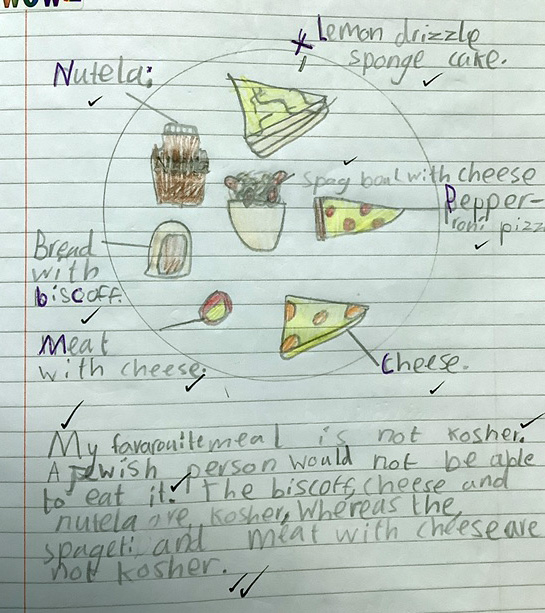 Lemon drizzle
sponge cake.
Nutela:
spag bowl with cheese
Pepper-
roni pizz
Bread
with
biscoff.
Meat
with cheese.
Cheese.
My favarouite meal is not kosher.
A Jewish person would not be able
to eat it. The biscoff, cheese and
nutela are kosher, whereas the
spageti and meat with cheese are
not kosher.